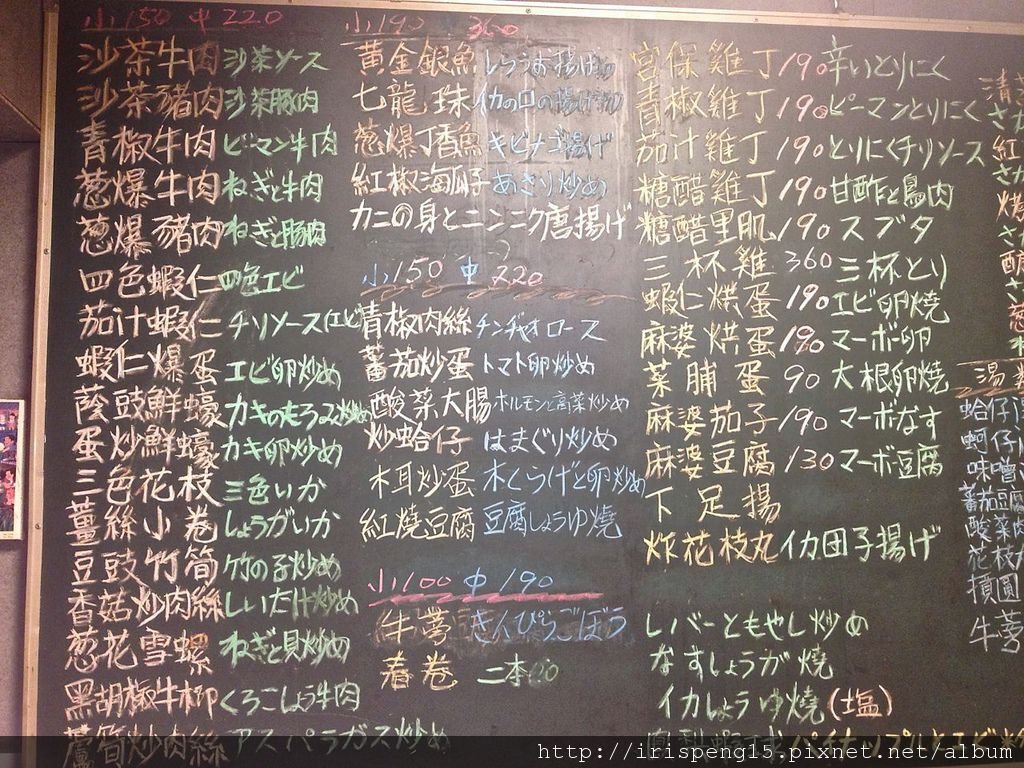 小150 中220
沙茶牛肉 沙茶ソース
沙茶豬肉 沙茶豚肉
青椒牛肉 ピーマン牛肉
葱爆牛肉 ねぎと牛肉
葱爆豬肉 ねぎと豚肉
四色蝦仁 四色エビ
茄汁蝦仁 チリソース(エビ
蝦仁爆蛋 エビ卵炒め
蔭豉鮮蠔 カキのもろみ炒め
蛋炒鮮蠔 カキ卵炒め
三色花枝 三色いか
薑絲小卷 しょうがいか
豆豉竹筍 竹の子炒め
香菇炒肉絲 しいたけ炒め
葱花雪螺 ねぎと貝炒め
黑胡椒牛柳 くろこしょう牛肉
蘆筍炒肉絲 アスパラガス炒め
小190 360
黃金銀魚 しらうお揚げ物
七龍珠 イカの口の揚げ物
葱爆丁香魚 キビナゴ揚げ
紅椒海瓜子 あさり炒め
カニの身とニンニク唐揚げ
小150 中220
青椒肉絲 チンヂャオロース
蕃茄炒蛋 トマト卵炒め
酸菜大腸 ホルモンと高菜炒め
炒蛤仔 はまぐり炒め
木耳炒蛋 木くらげと卵炒め
紅燒豆腐 豆腐しょうゆ焼
小100 中190
牛蒡 きんぴらごぼう
春卷 二本
宮保雞丁 190 辛いとりにく
青椒雞丁 190 ピーマンとりにく
茄汁雞丁 190 とりにくチリソース
糖醋雞丁 190 甘酢と鳥肉
糖醋里肌 190 スブタ
三杯雞 360 三杯とり
蝦仁烘蛋 190 エビ卵焼
麻婆烘蛋 190 マーボ卵
菜脯蛋 90 大根卵焼
麻婆茄子 190 マーボなす
麻婆豆腐 130 マーボ豆腐
下足揚
炸花枝丸 イカ団子揚げ
レバーともやし炒め
なすしょうが焼
イカしょうゆ焼(塩)
鳳梨蝦球 パイナップルとエビ
清
紅
湯
蛤仔
蚵仔
味噌
蕃茄豆腐
酸菜肉
花枝
摃圓
牛蒡
http://irispeng15.pixnet.net/album